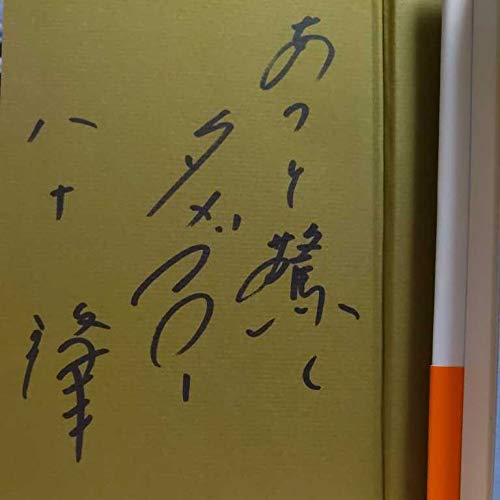 あっと驚く
タメゴロー
八十